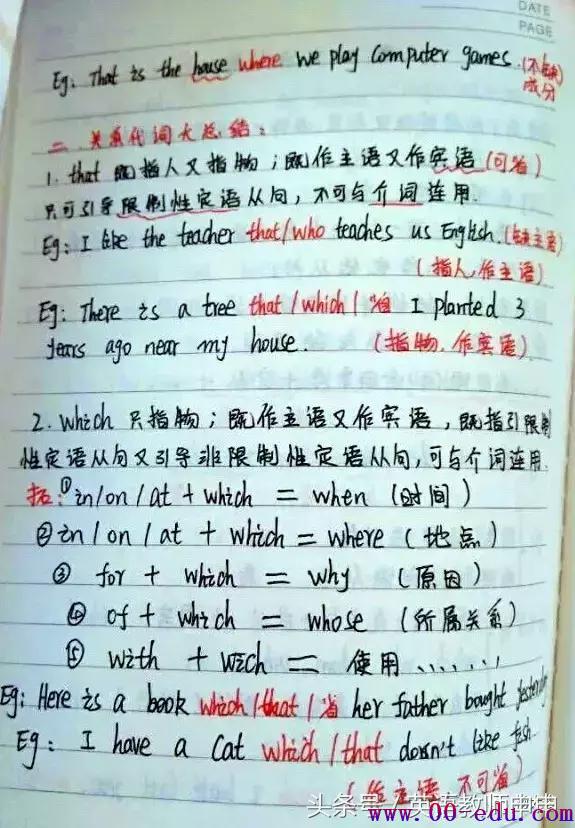 DATE
PAGE
Eg: That is the house where we play computer games. (不缺
成分)
二、关系代词大总结:
1. that 既指人又指物;既作主语又作宾语(可省)
只可引导限制性定语从句,不可与介词连用.
Eg: I like the teacher that/who teaches us English. (缺主语)
(指人,作主语)
Eg: There is a tree that/which/省 I planted 3
years ago near my house. (指物.作宾语)
2. which 只指物;既作主语又作宾语,既指引限制
性定语从句又引导非限制性定语从句,可与介词连用.
①in/on/at + which = when (时间)
②in/on/at + which = where (地点)
③ for + which = why (原因)
④ of + which = whose (所属关系)
⑤ with + wich = 使用......
Eg: Here is a book which/that/省 her father bought yesterday
Eg: I have a cat which/that doesn't like fish.
(作主语,不可省)
头条号 / 英语教师
www.00-edu.com